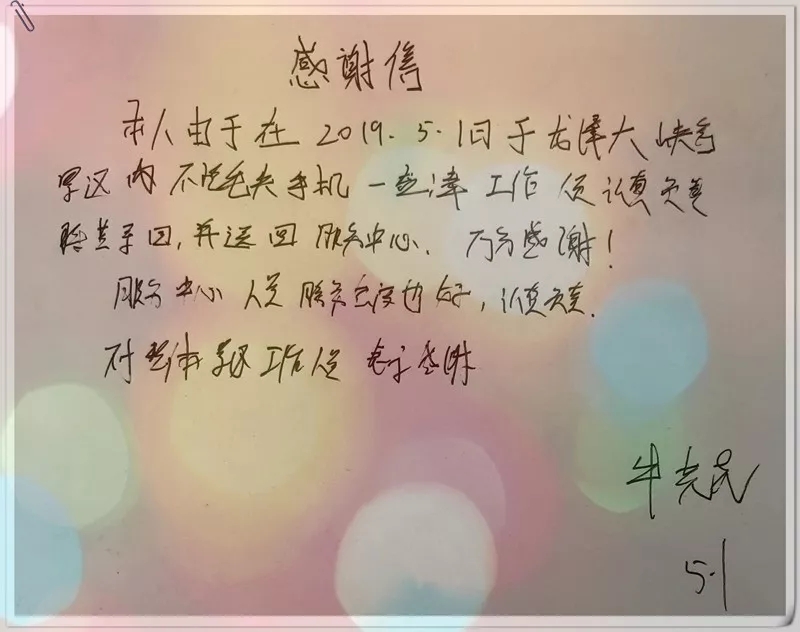 感谢信
本人由于在2019.5.1日于龙潭大峡谷
景区内不慎丢失手机一 工作员认真负责
捡 寻回,并送回服务中心.万分感谢!
服务中心人员服务态度也好,认真负责.
对整体景区工作人员表示感谢
牛
5.1